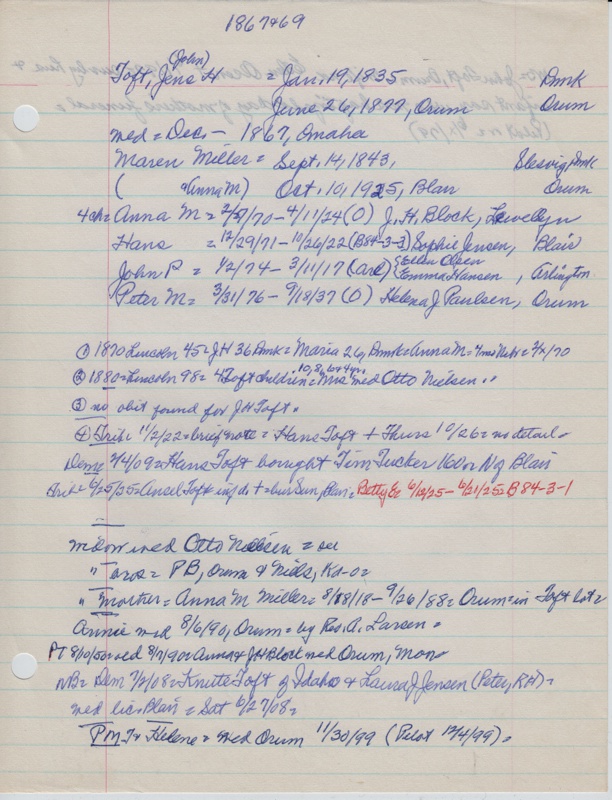 1867+69
(John)
Toft, Jens H = Jan. 19, 1835 Dmk
June 26, 1877, Orum Orum
med = Dec. - 1867, Omaha
Maren Miller = Sept. 14, 1843, Slesvig, Dmk
( Anna M) Oct. 10, 1925, Blair Orum
4 ch = Anna M = 2/ /70 - 4/11/24 (O) J. H. Block, Lewellyn
Hans = 12/29/71 - 10/26/22 (B84-3-3) Sophie Jensen, Blair
John P = 1/2/74 - 3/11/17 (Arl) { Ellen Olsen
Emma Hansen, Arlington
Peter M = 3/31/76 - 9/18/37 (O) Helena J Paulsen, Orum
① 1870 Lincoln 45 = JH 36 Dmk = Maria 26, Dmk = Anna M = 4 mos Nebr = 2/x/70
② 1880 = Lincoln 98 = 4 Toft children = 10, 8, 6 + 4 yrs Mrs med Otto Nielsen ..
③ no obit found for JH Toft ..
④ Trib = 11/2/22 = brief note = Hans Toft + Thurs 10/26 = no detail =
Dem = 2/4/09 = Hans Toft bought Tim Tucker 160 = N of Blair
Trib = 6/25/25 = Ansel Toft inf dt + = bur Sun, Blair = Betty E = 6/12/25 - 6/21/25 = B 84-3-1
Widow med Otto Nielsen = see
" Toros = PB, Orum & Niels, Ka-o =
" Mother = Anna M Miller = 8/18/18 - 9/26/88 = Orum = in Toft lot =
Annie med 8/6/90, Orum = by Rev. A. Larsen =
PT 8/10/50 = 8/7/90 = Anna & JH Block med Orum, Mon =
NB = Dem 7/2/08 = Knute Toft of Idaho & Laura J Jensen (Peter, RH) =
med lic = Blair = Sat 6/27/08 =
PM T & Helene = med Orum 11/30/99 (Pilot 12/4/99) =